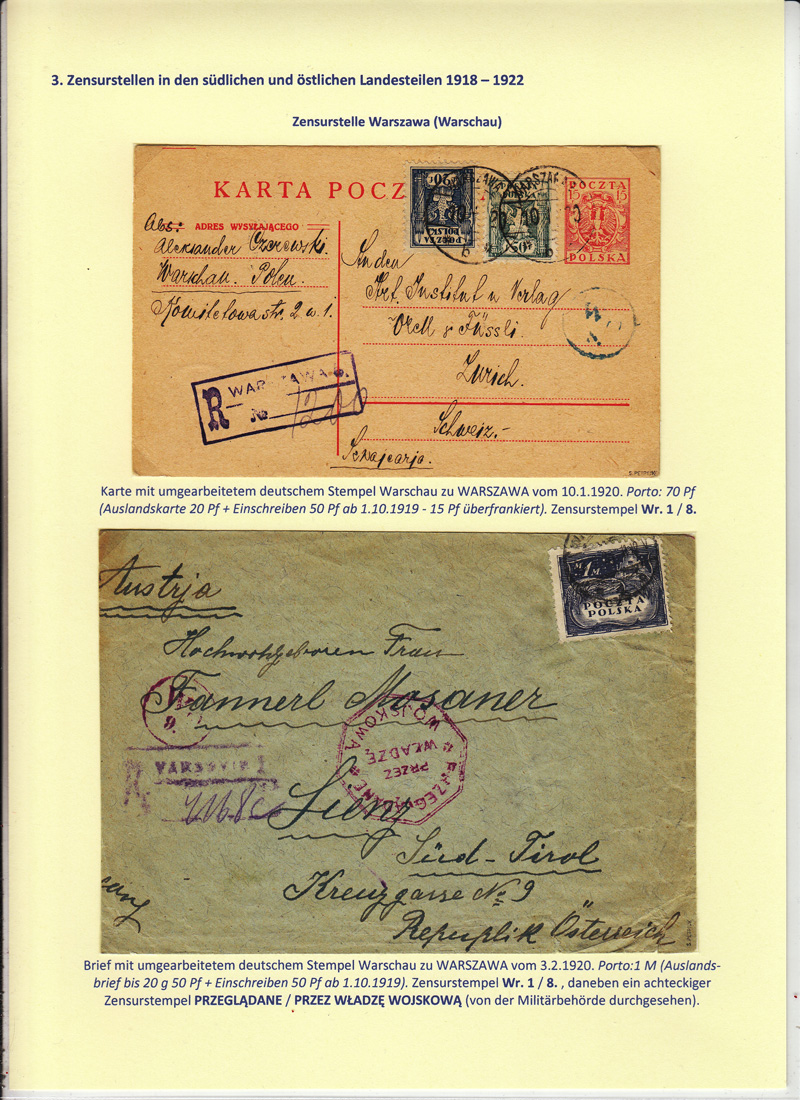 3. Zensurstellen in den südlichen und östlichen Landesteilen 1918 – 1922
Zensurstelle Warszawa (Warschau)
KARTA POCZ
20
POCZTA
POLSKA
POCZTA
15 15
POLSKA
WARSZAWA
Abs:
ADRES WYSYŁAJĄCEGO
Aleksander Czerewski.
Warschau. Polen.
Komitetowa str. 2 w. 1.
An den
Art. Institut u Verlag
Orell & Füssli.
Zürich.
Schweiz.-
Szwajcarja.
R WARSZAWA 6.
№ 1200
Karte mit umgearbeitetem deutschem Stempel Warschau zu WARSZAWA vom 10.1.1920. Porto: 70 Pf
(Auslandskarte 20 Pf + Einschreiben 50 Pf ab 1.10.1919 - 15 Pf überfrankiert). Zensurstempel Wr. 1 / 8.
M 1 M
POCZTA
POLSKA
Austrja
Hochwohlgeboren Frau
Fannerl Mosaner
PRZEGLĄDANE
PRZEZ
WŁADZĘ
WOJSKOWĄ
R
Lienz
Süd-Tirol
Kreuzgasse № 9
Republik Österreich
Brief mit umgearbeitetem deutschem Stempel Warschau zu WARSZAWA vom 3.2.1920. Porto:1 M (Auslands-
brief bis 20 g 50 Pf + Einschreiben 50 Pf ab 1.10.1919). Zensurstempel Wr. 1 / 8. , daneben ein achteckiger
Zensurstempel PRZEGLĄDANE / PRZEZ WŁADZĘ WOJSKOWĄ (von der Militärbehörde durchgesehen).